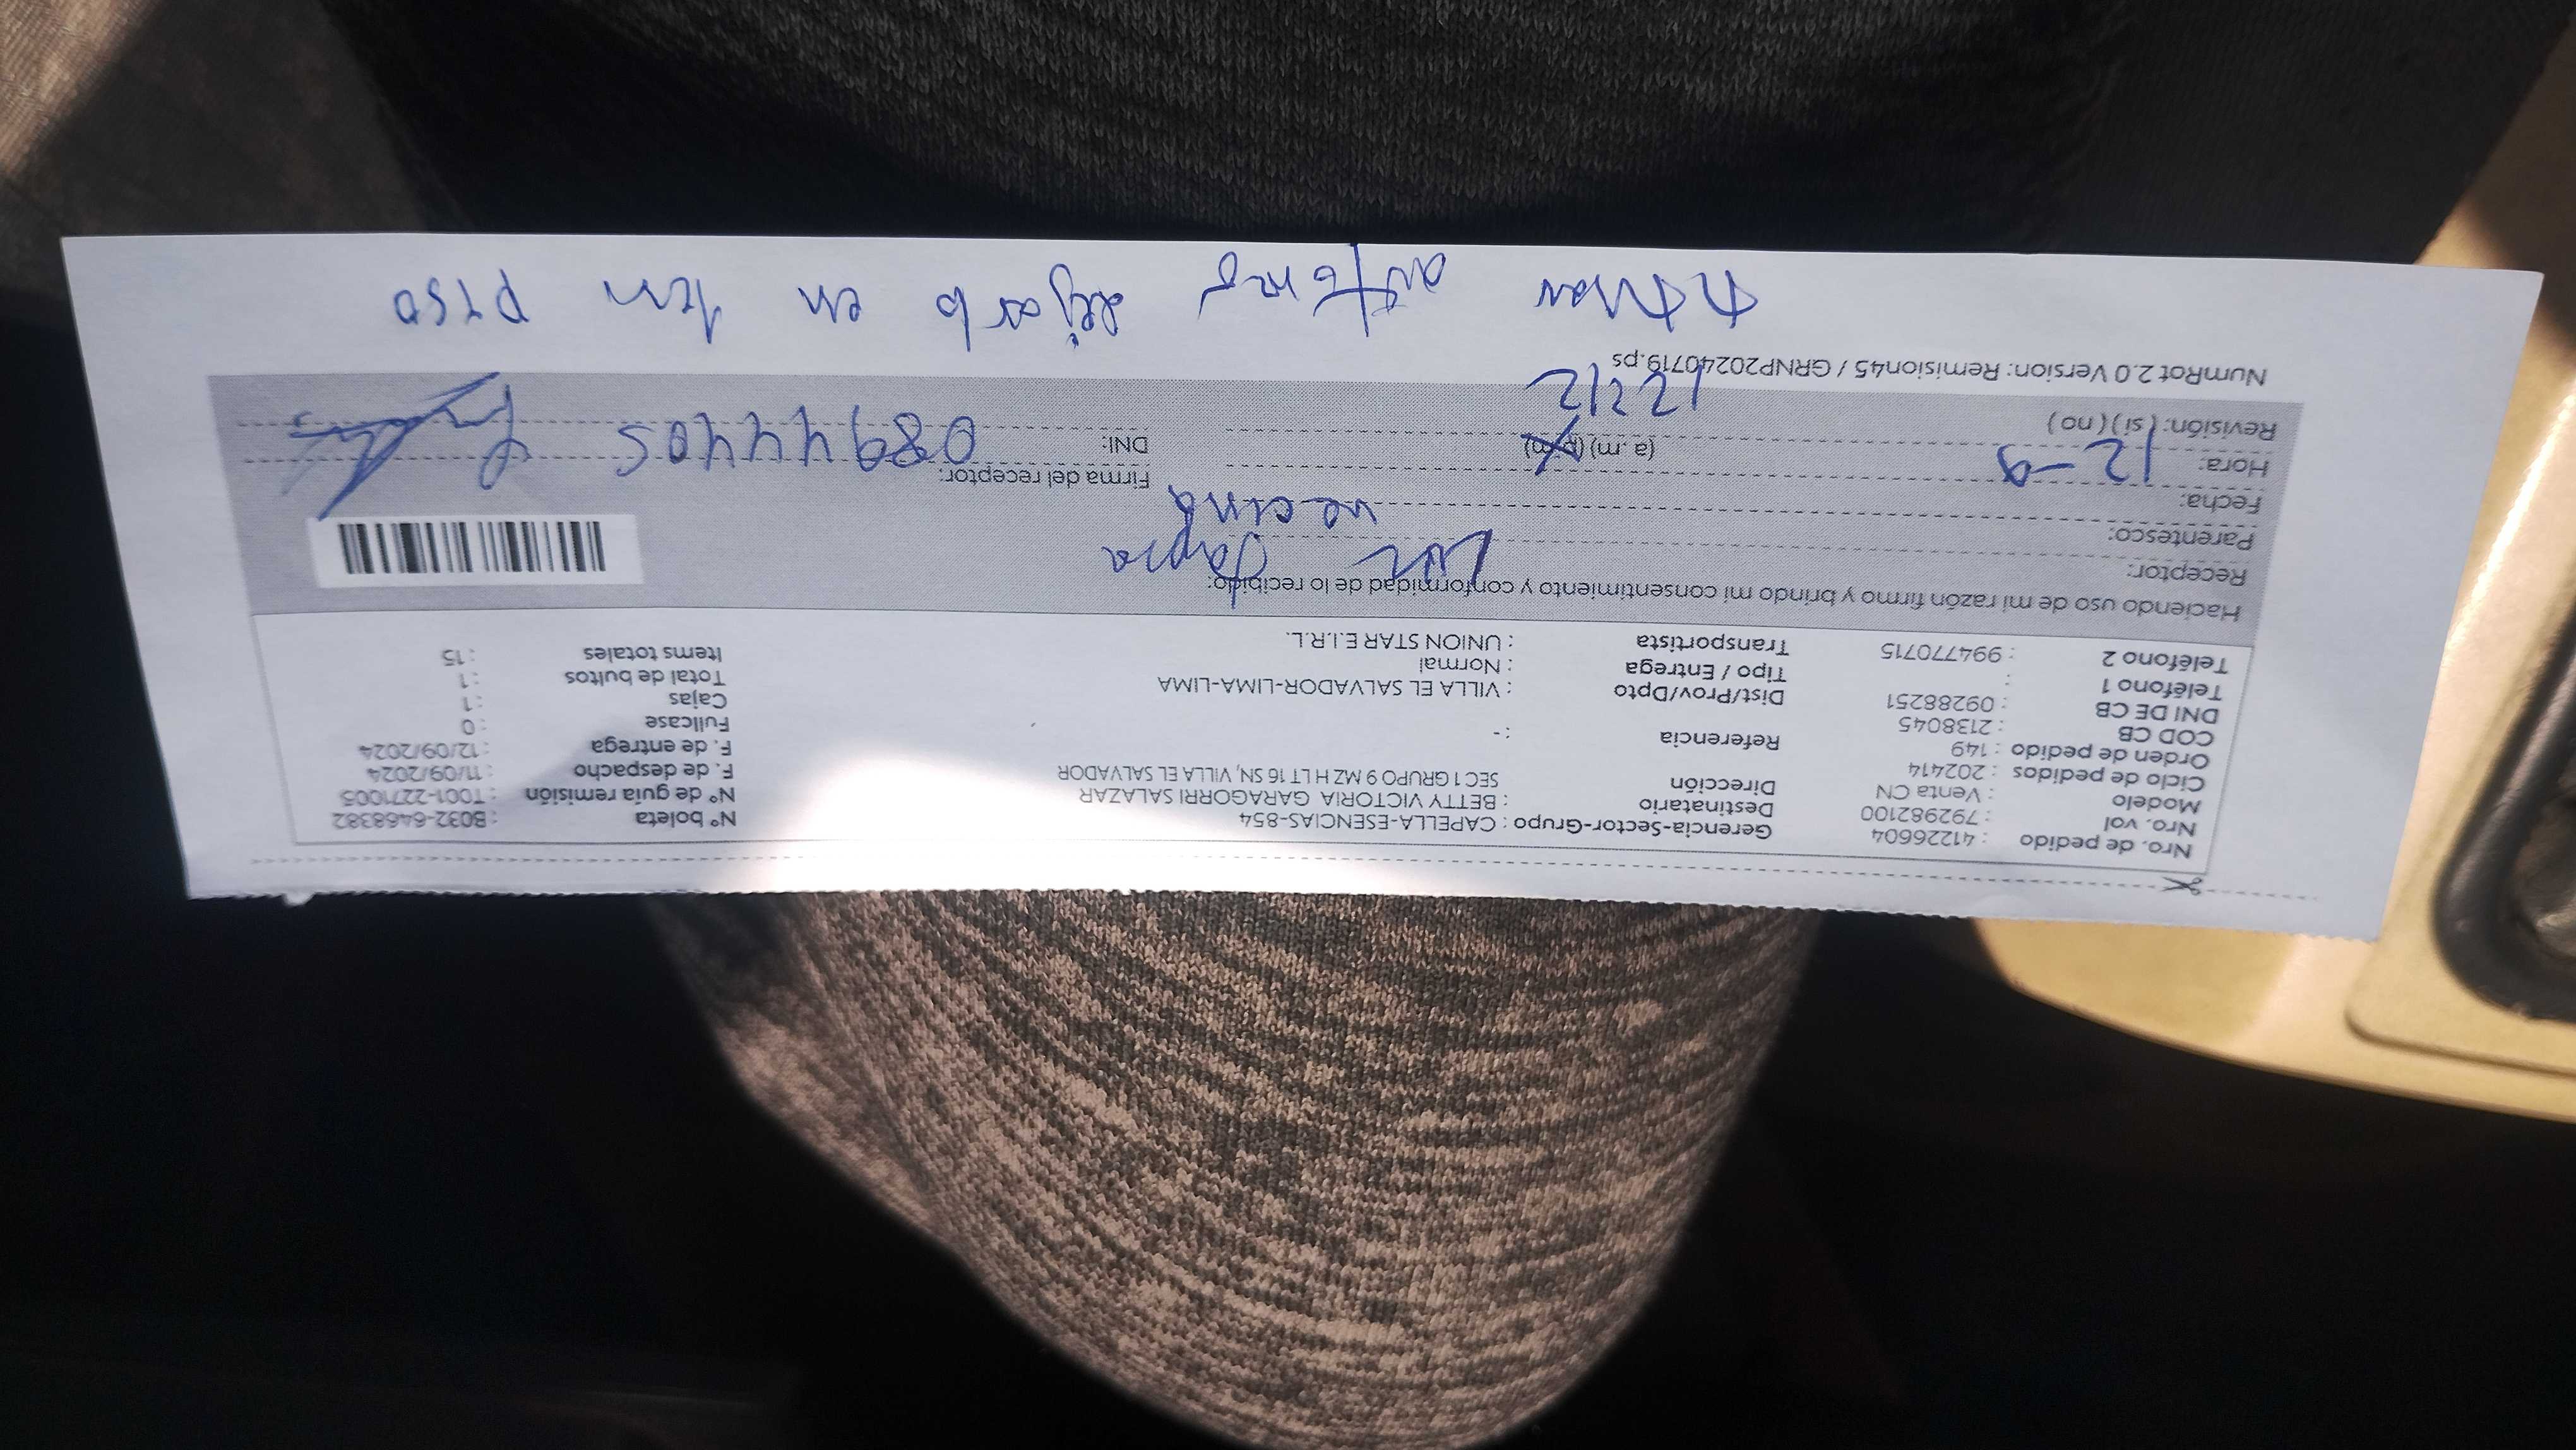 Nro. de pedido : 41226604 Gerencia-Sector-Grupo : CAPELLA-ESENCIAS-854 Nº boleta : B032-6468382
Nro. vol : 792982100 Destinatario : BETTY VICTORIA GARAGORRI SALAZAR Nº de guía remisión : T001-2271005
Modelo : Venta CN Dirección SEC 1 GRUPO 9 MZ H LT 16 SN, VILLA EL SALVADOR F. de despacho : 11/09/2024
Ciclo de pedidos : 202414 F. de entrega : 12/09/2024
Orden de pedido : 149 Referencia : - Fullcase : 0
COD CB : 2138045 Cajas : 1
DNI DE CB : 09288251 Dist/Prov/Dpto : VILLA EL SALVADOR-LIMA-LIMA Total de bultos : 1
Teléfono 1 : Tipo / Entrega : Normal Items totales : 15
Teléfono 2 : 994770715 Transportista : UNION STAR E.I.R.L.
Haciendo uso de mi razón firmo y brindo mi consentimiento y conformidad de lo recibido:
Receptor: Luz Tapia
Parentesco: vecina
Fecha: 12-9 Firma del receptor:
Hora: (a .m) (p. m) DNI: 08944405
Revisión: ( si ) ( no ) 12212
NumRot 2.0 Version: Remision45 / GRNP20240719.ps
dejarlo en 1er piso